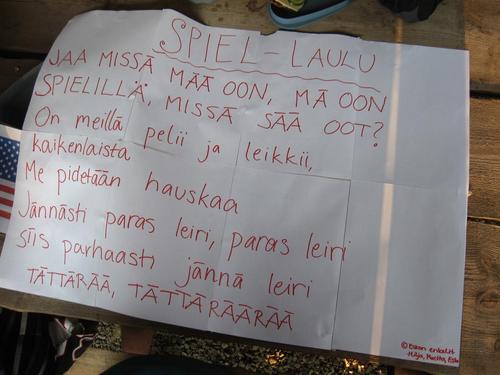 SPIEL-LAULU
JAA MISSÄ MÄÄ OON, MÄ OON
SPIELILLÄ, MISSÄ SÄÄ OOT?
On meillä pelii ja leikkii,
kaikenlaista
Me pidetään hauskaa
Jännästi paras leiri, paras leiri
siis parhaasti jännä leiri
TÄTTÄRÄÄ, TÄTTÄRÄÄRÄÄ
© Eskon enkelit